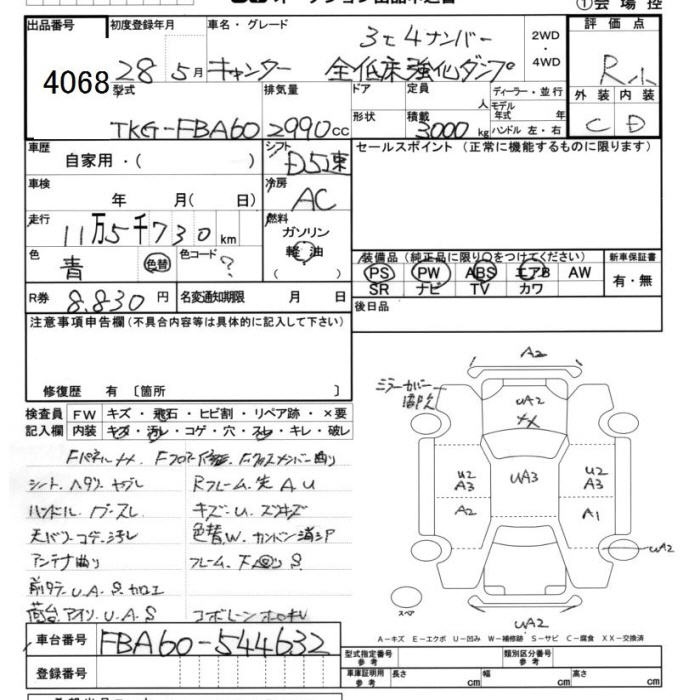 ①会場控
出品番号 4068
初度登録年月 28 5月
車名・グレード 3t4ナンバー
キャンター 全低床強化ダンプ
2WD ・ 4WD
評価点 R小
外装 内装
C D
型式 TKG-FBA60
排気量 2990cc
ドア
形状
定員 人
積載 3000kg
ディーラー・並行
モデル年式 年
ハンドル 左・右
車歴 自家用・( )
シフト D5速
セールスポイント (正常に機能するものに限ります)
車検 年 月( 日)
冷房 AC
走行 11万5千730km
燃料 ガソリン
軽油
( )
色 青 色替 色コード ?
装備品 (純正品に限り○をつけてください)
PS PW ABS エアB AW
SR ナビ TV カワ
新車保証書
有・無
R券 8,830円
名変通知期限 月 日
後日品
注意事項申告欄 (不具合内容等は具体的に記入して下さい)
修復歴 有 〔箇所 〕
検査員 FW キズ・飛石・ヒビ割・リペア跡・×要
記入欄 内装 キズ・汚レ・コゲ・穴・スレ・キレ・破レ
シート、ヘタリ、ヤブレ
Rフレーム、先 AU
ハンドル、
キズ・U、
天バリ コゲ、汚レ
色替W、
アンテナ曲り
フレーム、
U.A.S 加工
荷台 アオリ、U.A.S
A2
ミラーカバー
UA2
XX
UA3
U2
A3
A2
U2
A3
A1
UA2
スペア
UA2
A－キズ E－エクボ U－凹み W－補修跡 S－サビ C－腐食 XX－交換済
車台番号 FBA60-544632
登録番号
型式指定番号 参考
類別区分番号 参考
車庫証明用 参考 長さ cm 幅 cm 高さ cm